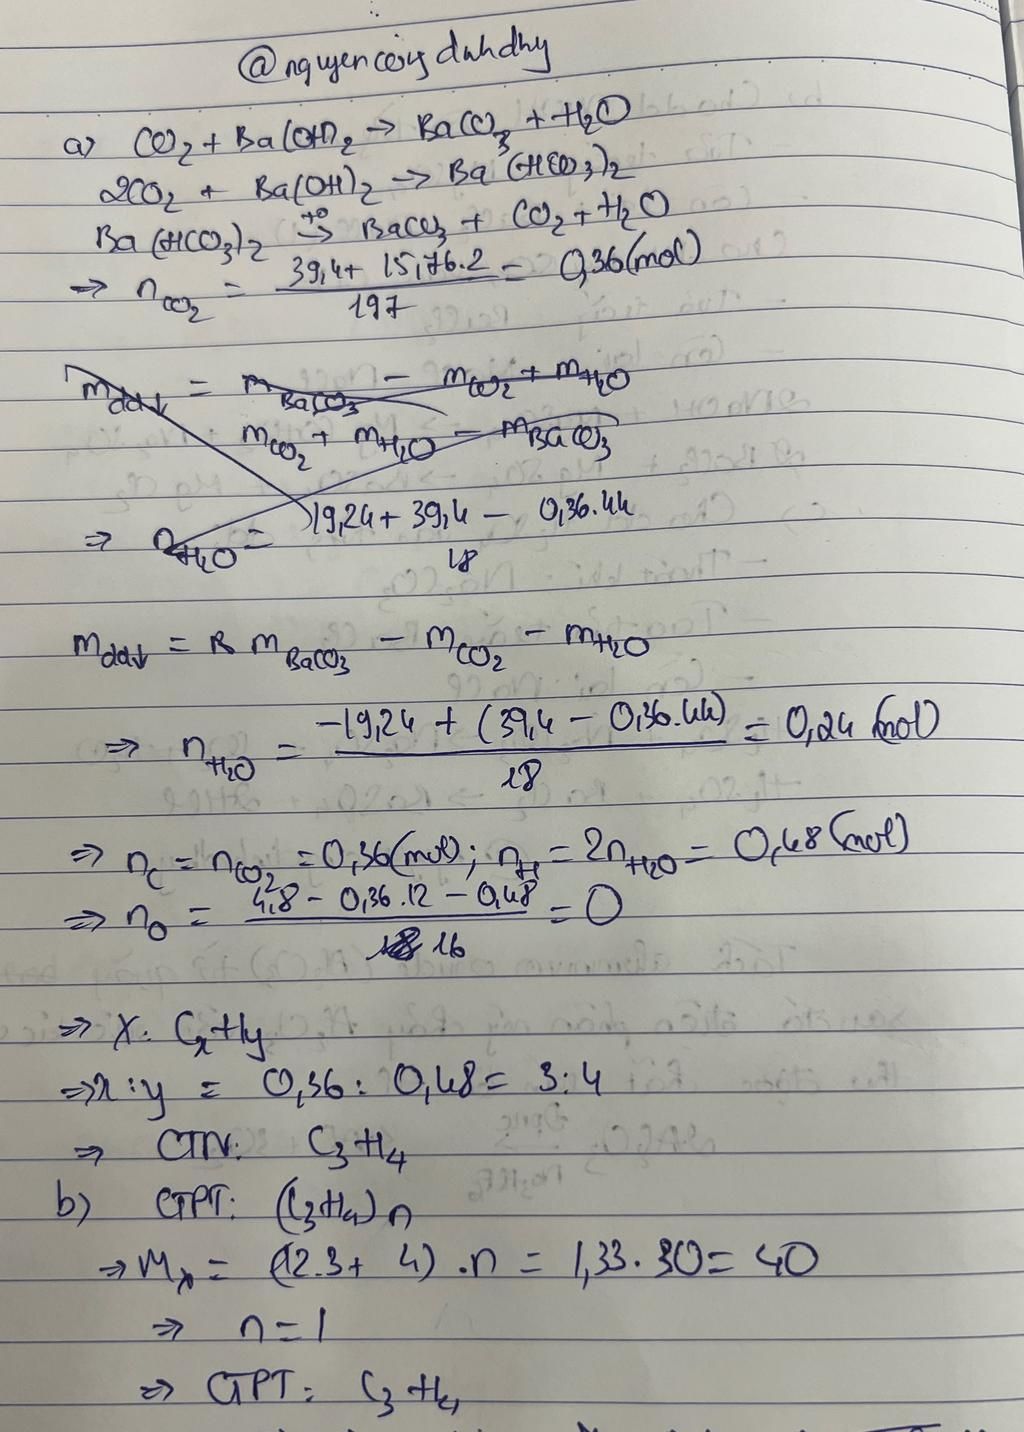 @nguyencongduhdhy
a) CO₂ + Ba(OH)₂ → BaCO₃ + H₂O
2CO₂ + Ba(OH)₂ → Ba(HCO₃)₂
Ba(HCO₃)₂ →(t°) BaCO₃ + CO₂ + H₂O
⇒ n_CO₂ = (39,4 + 15,76.2)/197 = 0,36 (mol)
m_dd↓ = m_BaCO₃ - m_CO₂ + m_H₂O
m_CO₂ + m_H₂O - m_BaCO₃
⇒ n_H₂O = (19,24 + 39,4 - 0,36.44)/18
m_dd↓ = m_BaCO₃ - m_CO₂ - m_H₂O
⇒ n_H₂O = (-19,24 + (39,4 - 0,36.44))/18 = 0,24 (mol)
⇒ n_C = n_CO₂ = 0,36 (mol); n_H = 2n_H₂O = 0,48 (mol)
⇒ n_O = (4,8 - 0,36.12 - 0,48)/16 = 0
⇒ X: CxHy
⇒ x:y = 0,36 : 0,48 = 3:4
⇒ CTN: C₃H₄
b) CTPT: (C₃H₄)n
⇒ Mx = (12.3 + 4).n = 1,33.30 = 40
⇒ n = 1
⇒ CTPT: C₃H₄